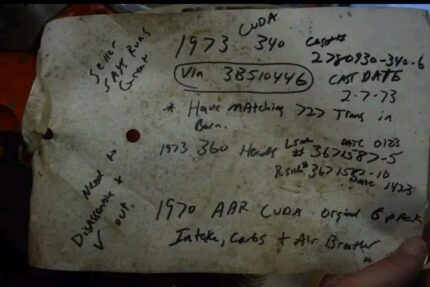 Seller
SAys Runs
Great
1973 CUDA 340
Vin 3B510446
Casting#
2780930-340-6
CAST DATE
2-7-73
* Have MAtching 727 Trans in
Barn.
1973 360 Heads L side # 3671587-5 DATE 0123
R side # 3671587-10
Date 1423
Need to
Disassemble +
✓ out
1970 AAR CUDA Original 6 pack
Intake, Carbs + Air Breather